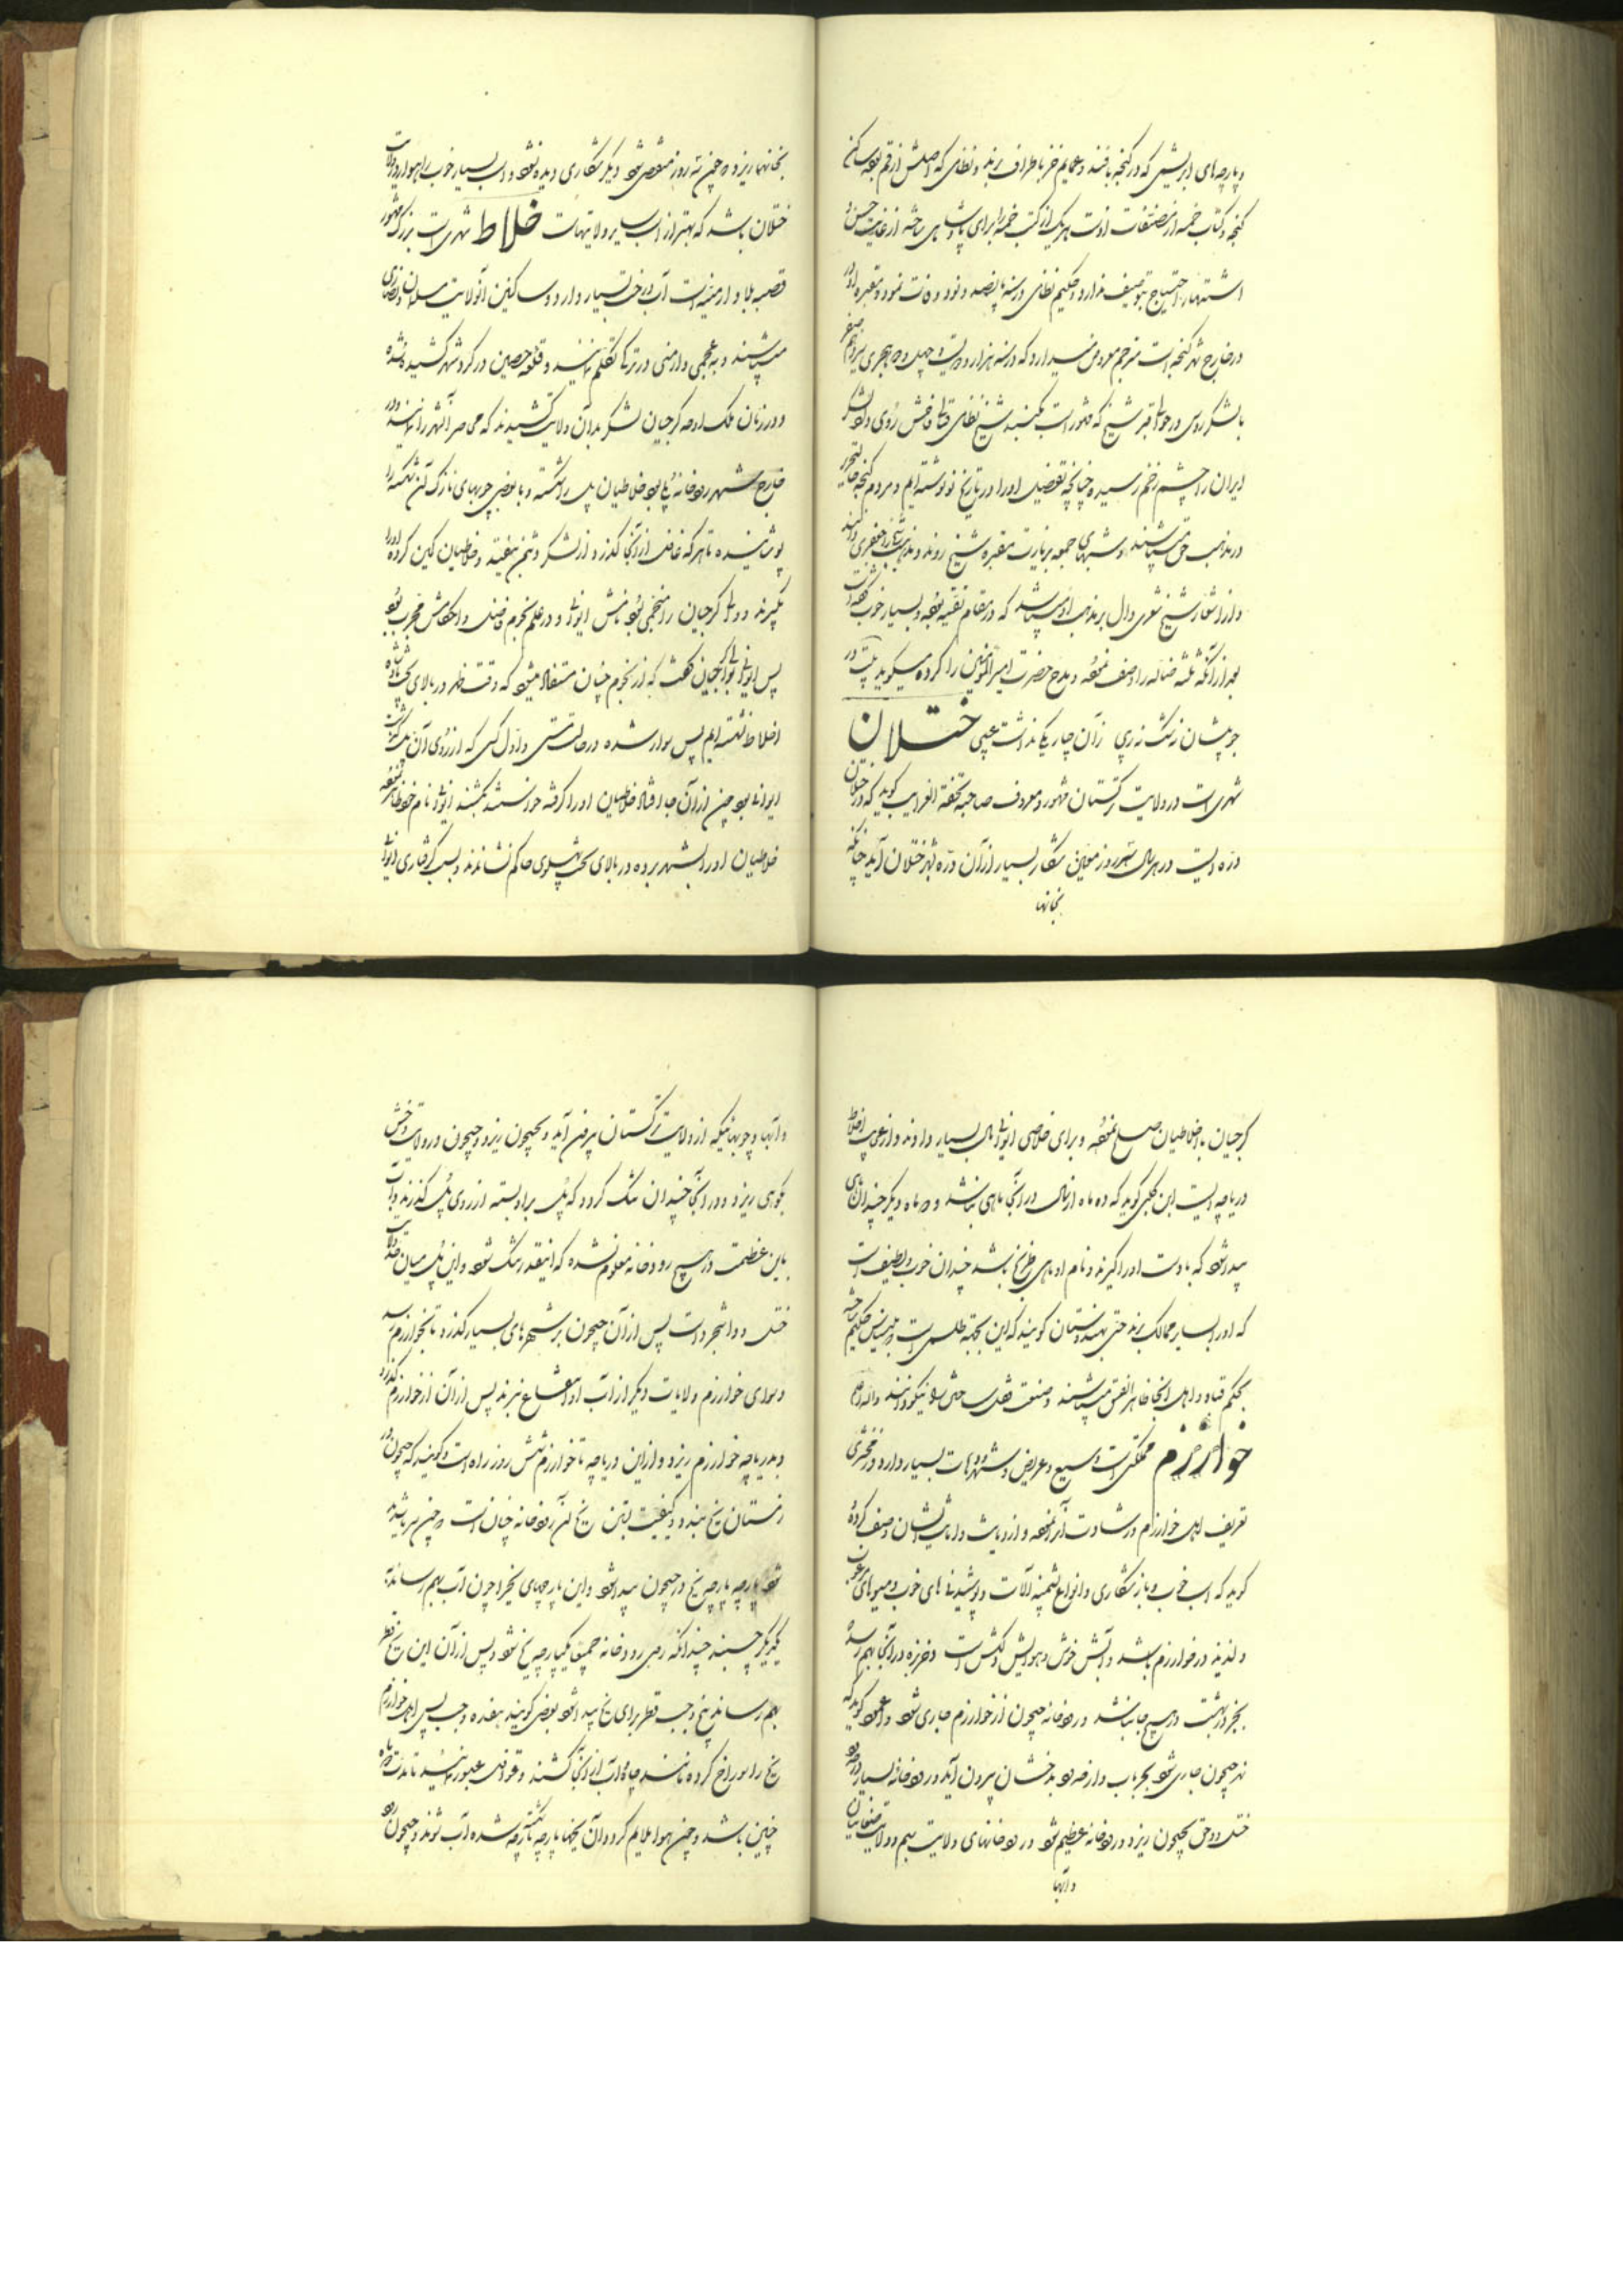 و پارچه‌های ابریشمی که در گنجه بافند و عمایم خز باطراف برند و نظامی که اصلش از قم بوده ساکن
گنجه و کتاب خمسه از مصنفات اوست هر یک از کتب خمسه را برای پادشاهی ساخته از غایت حسن و
اشتهار احتیاج بتوصیف ندارد و حکیم نظامی در سنه پانصد و نود وفات نمود و مقبره او در
در خارج شهر گنجه است مترجم معروض میدارد که در سنه هزار و دویست و چهل و دو هجری سیزدهم صفر
با لشکر روس در حوالی قبر شیخ که مشهور است بگنبد شیخ نظامی تلاقی فاحش روی داد لشکر
ایران را چشم زخم رسیده چنانچه تفصیل او را در تاریخ نو نوشته‌ایم و مردم گنجه
در مذهب حق میباشند و شبهای جمعه بزیارت مقبره شیخ روند و مذهب جعفری دارند
و از اشعار شیخ شعری دال بر مذهب او میباشد که در مقام تقیه بوده و بسیار خوب گفته است
بعد از آنکه ثلثه ضاله را وصف نموده و مدح حضرت امیر المؤمنین را کرده میگوید بیت در
جو پشان زشت زری زان چار یکا نداشت عیبی ختلان
شهریست در ولایت ترکستان مشهور و معروف صاحب تحفة الغرایب گوید که در ختلان
دره ایست در هر سال سه روز معین شکار بسیار از آن دره بشهر ختلان آید چنانکه
بخانها
بخانها ریزد و چون سه روز منقضی شود دیگر شکاری دیده نشود و اسب بسیار خوب راهوار در ولایت
ختلان باشد که بهتر از اسب سایر ولایتهاست خلاط شهری است بزرگ مشهور
قصبه بلاد ارمنیه است آب و درخت بسیار دارد و ساکنین آنولایت مسلمان و نصاری
میباشند و به عجمی و ارمنی و ترکی تکلم نمایند و قلعه حصین در گرد شهر کشیده شده
و در زمان ملک اوحد گرجیان لشکر بدان ولایت کشیدند که محاصره آنشهر را نمایند و در
خارج شهر رودخانه بوده خلاطیان پل را شکسته و با بعضی چوبهای نازک آن شکسته را
پوشانیده تا هر که غافل از آنجا گذرد از لشکر دشمن بیفتد و خلاطیان کمین کرده او را
بگیرند و والی گرجیان را منجمی بود نامش ایوانی و در علم نجوم فاضل و احکامش مجرب بود
پس ایوانی بوالی گرجیان گفت که از نجوم چنان مستفاد میشود که وقت ظهر در بالای تخت پادشاه
اخلاط نشسته‌ایم پس سوار شده در حالت مستی و اول کسی که از روی آن پل گذشت
ایوانی بود چون از آن جا افتاد خلاطیان او را گرفته خواستند بکشند ایوانی نام خود ظاهر نموده
خلاطیان او را بشهر برده در بالای تخت پهلوی حاکم نشاندند و بسبب گرفتاری ایوانی
گرجیان با خلاطیان صلح نموده و برای خلاصی ایوانی مال بسیار دادند و از عجایب اخلاط
دریاچه ایست ابن کلبی گوید که ده ماه از سال در آنجا ماهی نباشد و دو ماه دیگر چندان ماهی
پیدا شود که با دست او را گیرند و نام او ماهی طریخ باشد چندان خوب و لطیف است
که او را بسایر ممالک برند حتی بهندوستان گویند که این بجهة طلسمی است بلیناس حکیم ساخته
بحکم قباد و اهل آنجا ظاهر الفسق میباشند و صنعت قفل سازی را نیکو دانند والله اعلم
خوارزم مملکتی است وسیع و عریض و شهر و دهات بسیار دارد زمخشری
تعریف اهل خوارزم در شهادت آنرا نموده و از دیانت و امانت ایشان وصف کرده
گوید که اسب خوب و باز شکاری و انواع پشمینه آلات و پوشیدنی های خوب و میوه‌های مرغوب
و لذیذ در خوارزم باشد و آبش خوش و هوایش دلکش است و خربزه در آنجا بهم رسد
بجز در بهشت در هیچ جا نباشد و رودخانه جیحون از خوارزم جاری شود و گوید که
نهر جیحون جاری شود بحر باب و از حدود بدخشان بیرون آید و رودخانه بسیار در حدود
ختل و وخش بجیحون ریزد و رودخانه عظیم شود و رودخانهای ولایت بتم و ولایت صغانیان
و آنها
و آبها و جویهائیکه از ولایت ترکستان بیرون آید و بجیحون ریزد و جیحون در ولایت وخش
بکوهی ریزد و در آنجا چندان تنگ گردد که پل بر او بسته از روی پل گذرند و آب
باین عظمت در هیچ رودخانه معلوم نشده که اینقدر تنگ شود و این پل میان حد ولایت
ختل و واشجرد است پس از آن جیحون بر شهرهای بسیار گذرد تا بخوارزم رسد
و سوای خوارزم ولایات دیگر از آب او انتفاع نبرند پس از آن از خوارزم گذرد
و بدریاچه خوارزم ریزد و از این دریاچه تا خوارزم شش روز راه است و گویند که جیحون در
زمستان یخ بندد و کیفیت بستن یخ آن رودخانه چنان است چون سرما شدید
شود پارچه پارچه یخ در جیحون پیدا شود و این پارچهای یخ را چون آب بهم رساند
یکدیگر چسبند چندانکه روی رودخانه جمیعا یکپارچه یخ شود و پس از آن این یخ قطر
بهم رساند پنج وجب قطر برای یخ پیدا شود بعضی گویند هفده وجب پس اهل خوارزم
یخ را سوراخ کرده مانند چاه و آب از آنجا کشند و قوافل عبور نمایند تا مدت دو ماه
چنین باشد و چون هوا ملایم گردد آن یخها پارچه پارچه شده آب شوند و جیحون